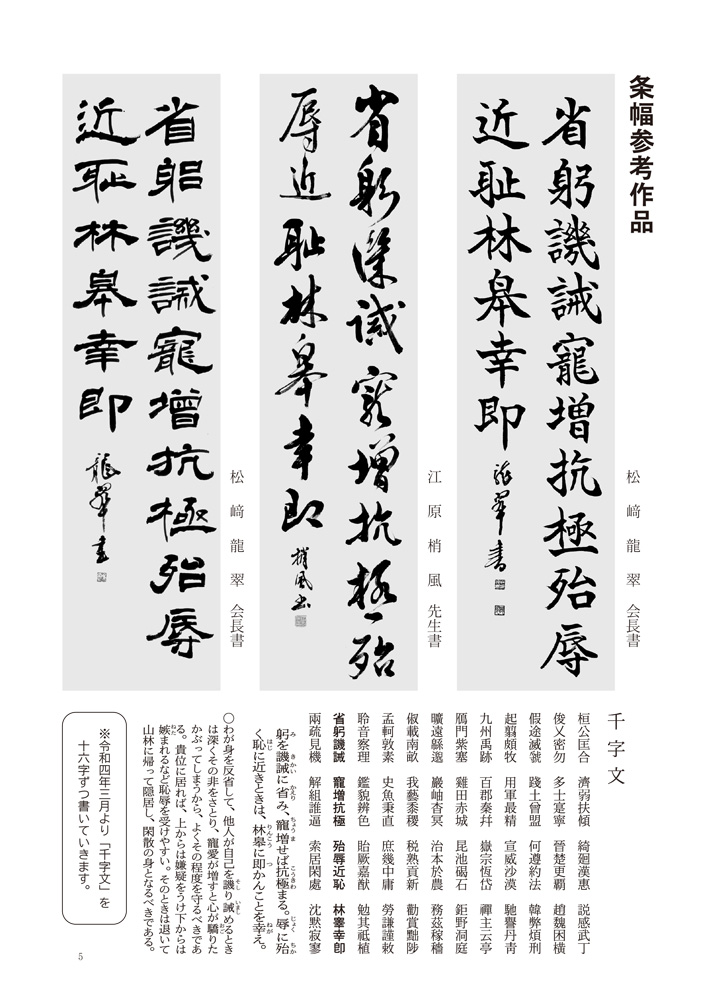 条幅参考作品
松﨑龍翠 会長書
省躬譏誡寵増抗極殆辱
近耻林皋幸即
龍翠書
江原梢風 先生書
省躬譏誡寵増抗極殆
辱近耻林皋幸即
梢風書
松﨑龍翠 会長書
省躬譏誡寵増抗極殆辱
近耻林皋幸即
龍翠書
千字文
桓公匡合 濟弱扶傾 綺廻漢惠 説感武丁
俊乂密勿 多士寔寧 晉楚更覇 趙魏困横
假途滅虢 踐土曾盟 何遵約法 韓弊煩刑
起翦頗牧 用軍最精 宣威沙漠 馳譽丹靑
九州禹跡 百郡秦幷 嶽宗恆岱 禪主云亭
鴈門紫塞 雞田赤城 昆池碣石 鉅野洞庭
曠遠緜邈 巖岫杳冥 治本於農 務茲稼穡
俶載南畝 我藝黍稷 税熟貢新 勸賞黜陟
孟軻敦素 史魚秉直 庶幾中庸 勞謙謹敕
聆音察理 鑑貌辨色 貽厥嘉猷 勉其祗植
省躬譏誡 寵増抗極 殆辱近恥 林睾幸即
兩疏見機 解組誰逼 索居閑處 沈默寂寥
躬を譏誡に省み、寵増せば抗極まる。辱に殆
く恥に近きときは、林皋に即かんことを幸え。
〇わが身を反省して、他人が自己を譏り誡めるとき
は深くその非をさとり、寵愛が増すと心が驕りた
かぶってしまうから、よくその程度を守るべきであ
る。貴位に居れば、上からは嫌疑をうけ下からは
嫉まれるなど恥辱を受けやすい。そのときは退いて
山林に帰って隠居し、閑散の身となるべきである。
※令和四年三月より「千字文」を
十六字ずつ書いていきます。
5